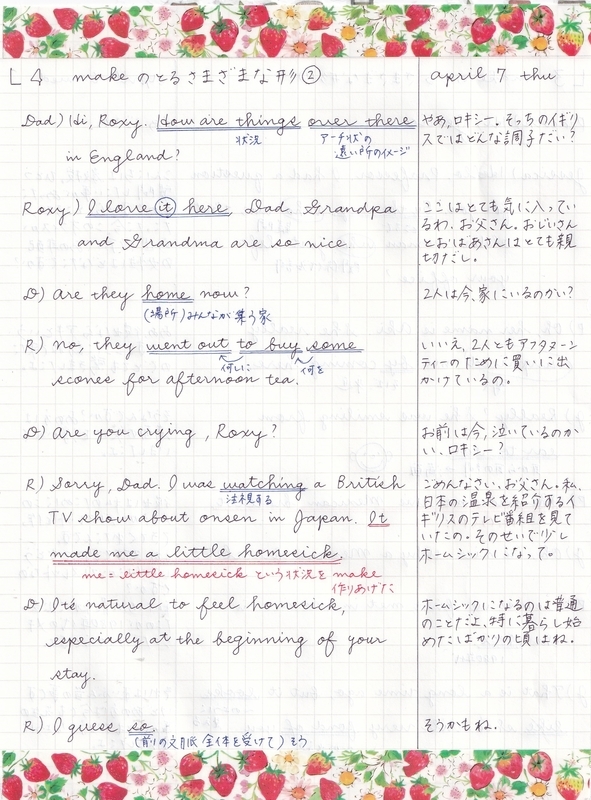 L4 makeのとるさまざまな形② april 7 thu
Dad) Hi, Roxy. How are things over there
状況 アーチ状の
遠い所のイメージ
in England?
やあ、ロキシー。そっちのイギリ
スではどんな調子だい?
Roxy) I love it here, Dad. Grandpa
and Grandma are so nice.
ここはとても気に入ってい
るわ、お父さん。おじいさん
とおばあさんはとても親
切だし。
D) Are they home now?
(場所)みんなが集う家
2人は今、家にいるのかい?
R) No, they went out to buy some
何しに 何を
scones for afternoon tea.
いいえ、2人ともアフタヌーン
ティーのために買いに出
かけているの。
D) Are you crying, Roxy?
お前は今、泣いているのか
い、ロキシー?
R) Sorry, Dad. I was watching a British
注視する
TV show about onsen in Japan. It
made me a little homesick.
me = little homesick という状況を make
作りあげた
ごめんなさい、お父さん。私、
日本の温泉を紹介するイ
ギリスのテレビ番組を見て
いたの。そのせいで少し
ホームシックになって。
D) It's natural to feel homesick,
especially at the beginning of your
stay.
ホームシックになるのは普通
のことだよ、特に暮らし始
めたばかりの頃はね。
R) I guess so.
(前の文脈全体を受けて)そう
そうかもね。